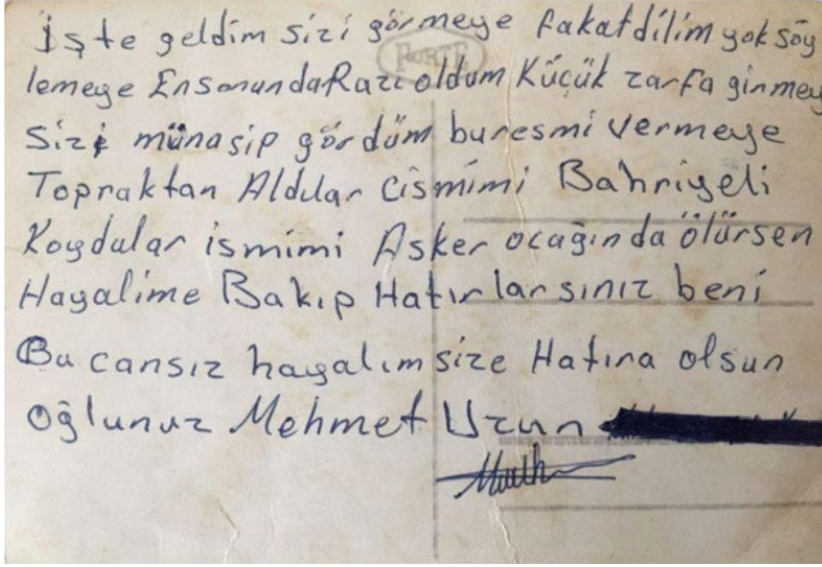 İşte geldim sizi görmeye fakat dilim yok söy
lemeye En sonunda Razi oldum Küçük zarfa girmey
Sizi münasip gördüm bu resmi vermeye
Topraktan Aldılar Cismimi Bahriyeli
Koydular ismimi Asker ocağında ölürsen
Hayalime Bakıp Hatırlarsınız beni
Bu cansız hayalım size Hatıra olsun
Oğlunuz Mehmet Uzun